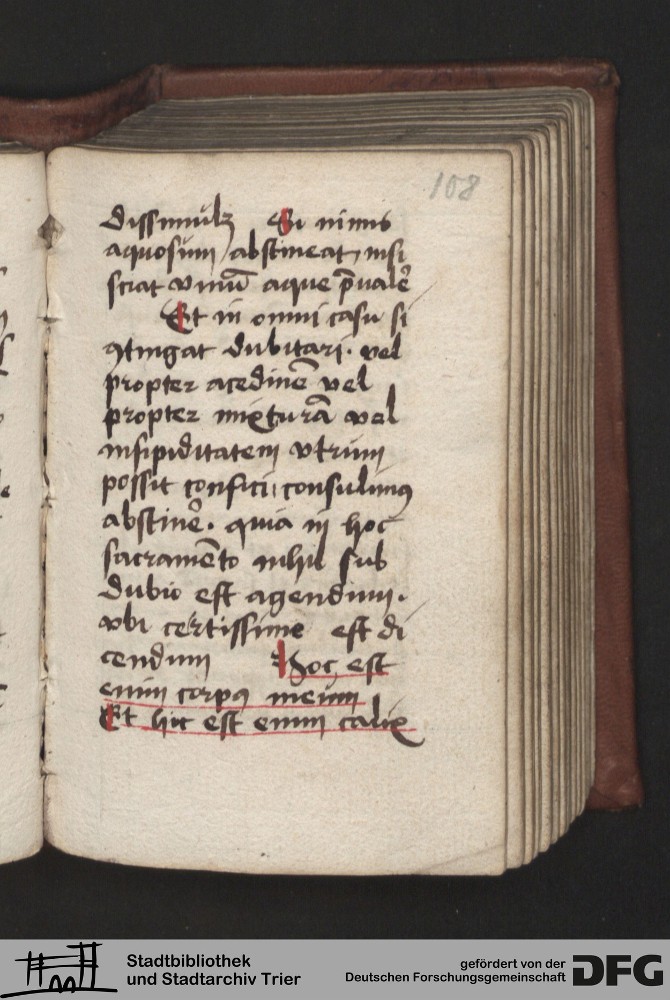 108
dissimulꝫ Si nimis
aquosum / abstineat, nisi
sciat vinū aque p̄ualē
Et in omni casu si
ꝯtingat dubitari. vel
propter acedinē vel
propter mixturā vel
insipiditatem vtrum
possit confici: consulimꝰ
abstinē. quia in hoc
sacramēto nihil sub
dubio est agendum.
vbi certissime est di
cendum Hoc est
enim corpꝰ meum
Et hic est enim calix
Stadtbibliothek
und Stadtarchiv Trier
gefördert von der
Deutschen Forschungsgemeinschaft DFG